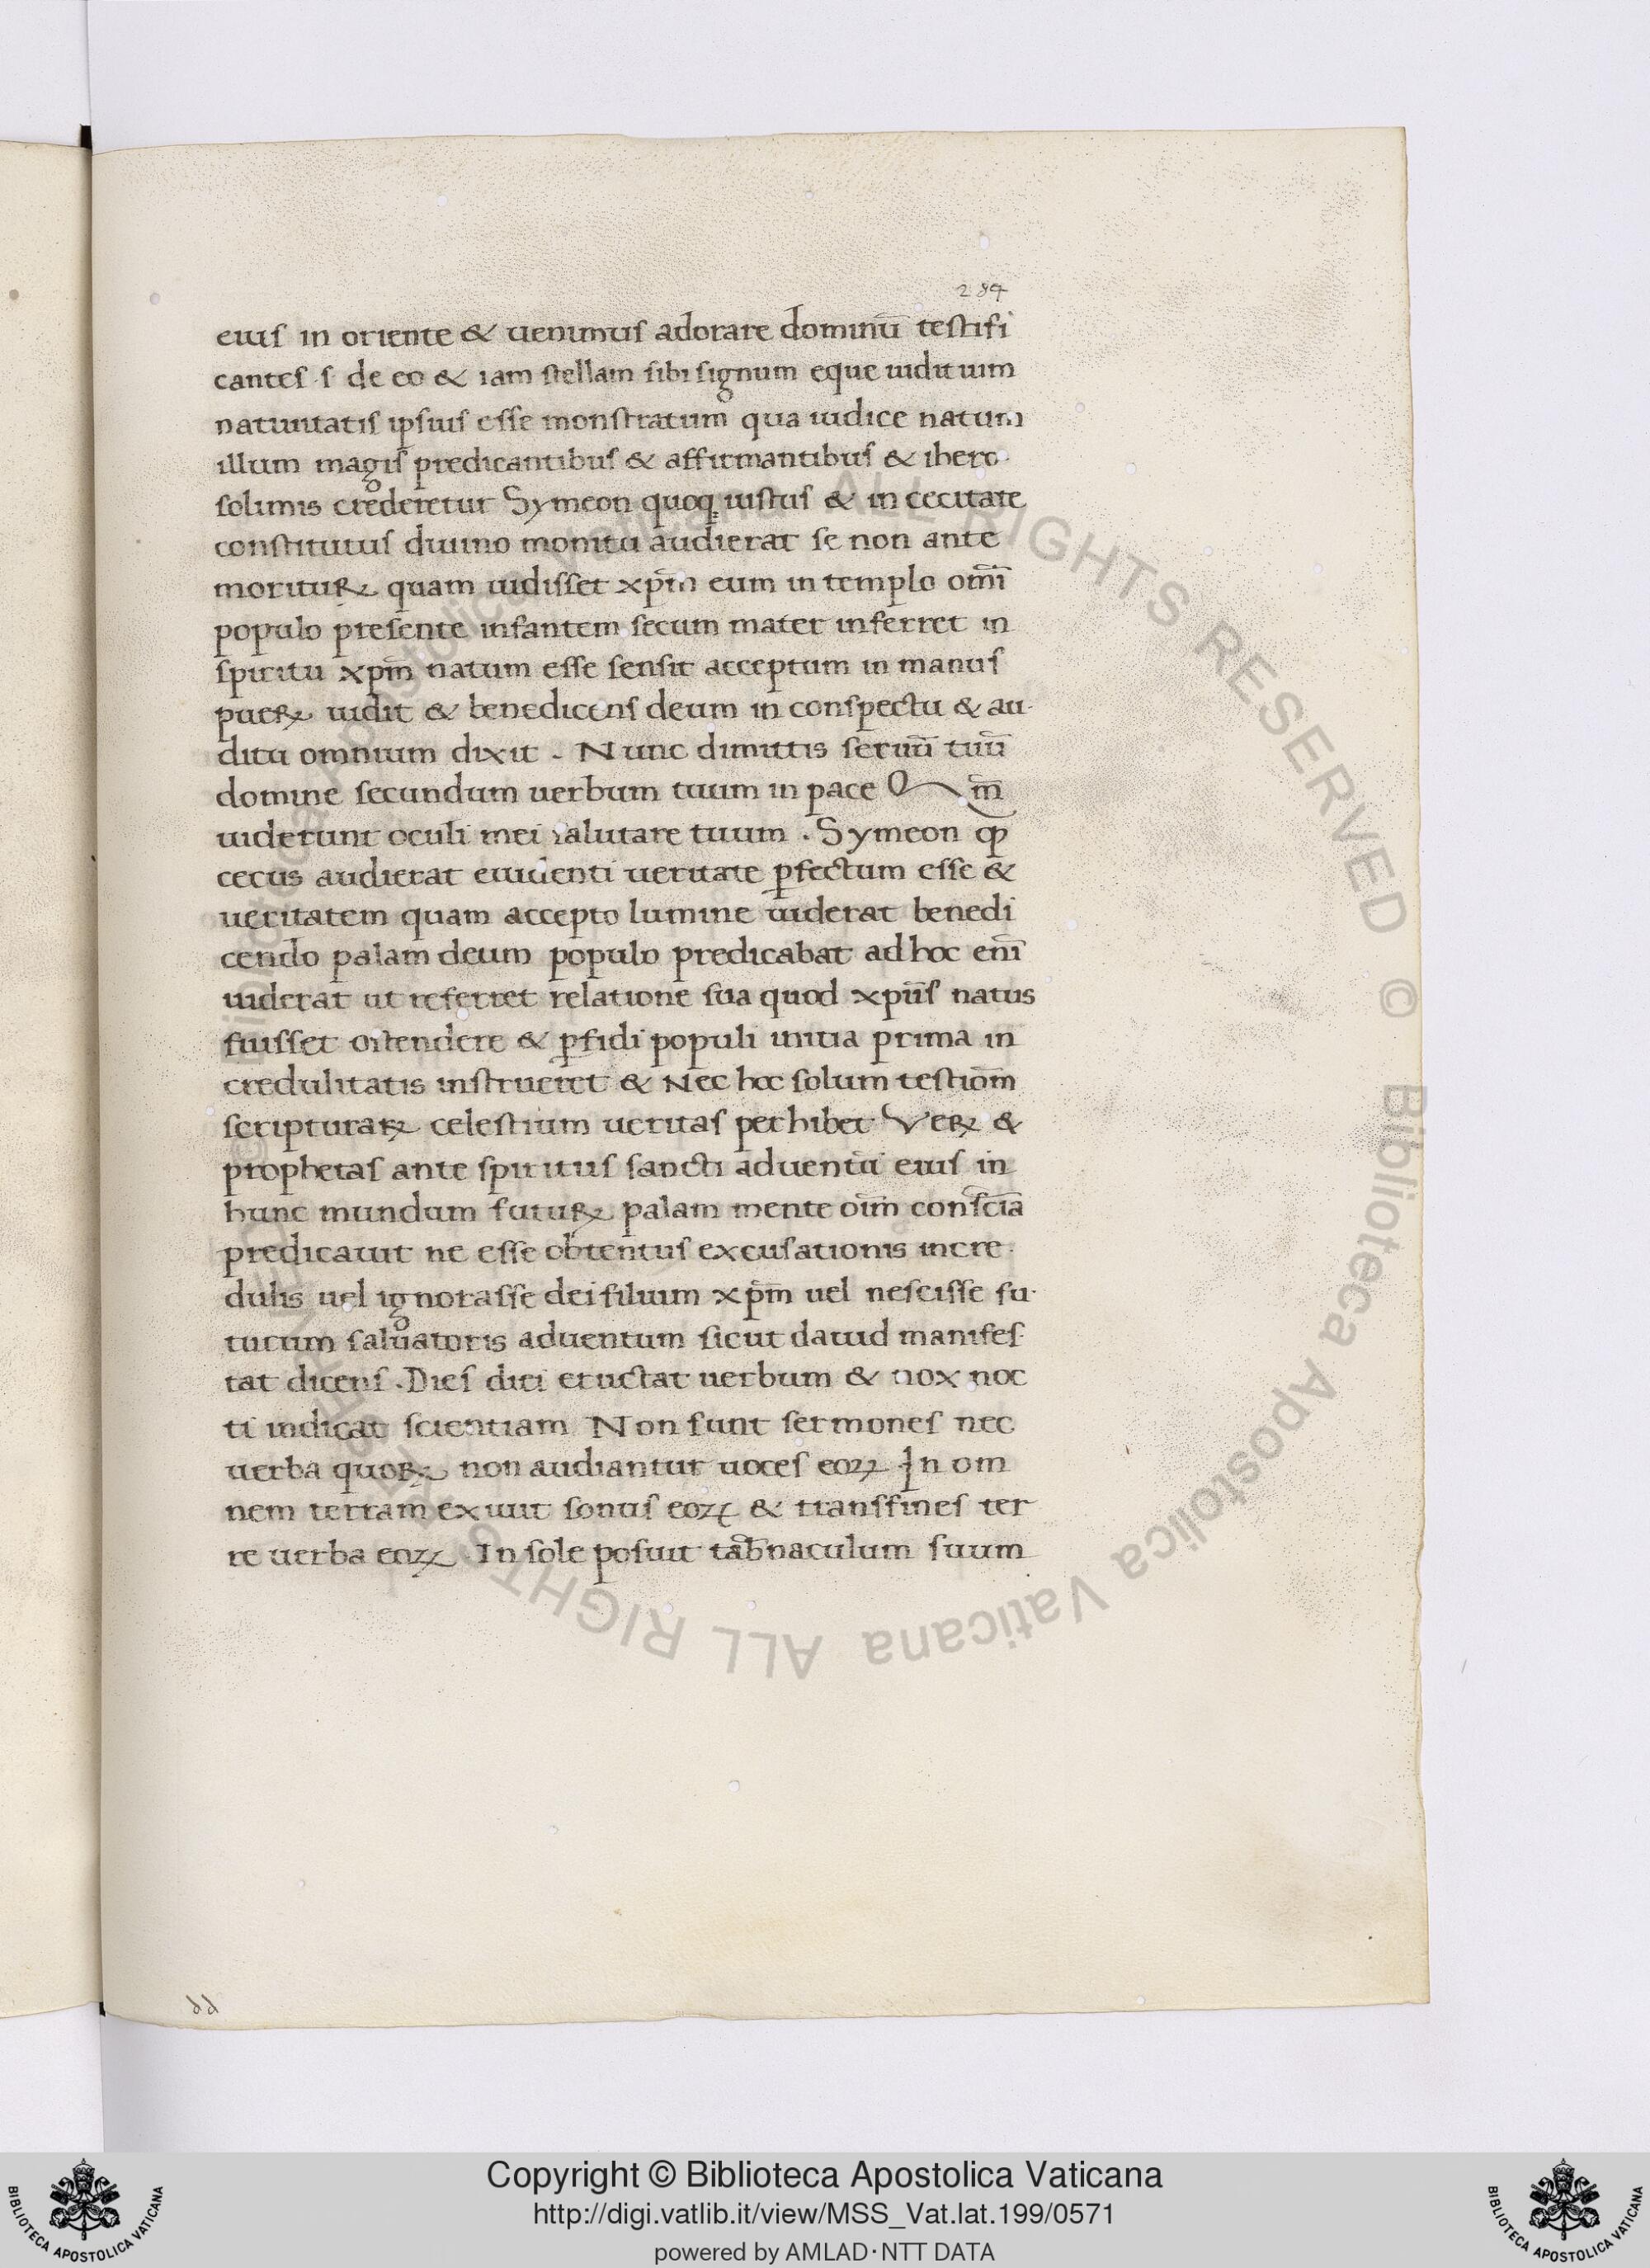 284
eius in oriente & uenimus adorare dominū testifi
cantes ·s· de eo & iam stellam sibi signum eque uidit uim
natiuitatis ipsius esse monstratum qua iudice natum
illum magis predicantibus & affirmantibus & ihero·
solimis crederetur Symeon quoq; iustus & in cecitate
constitutus diuino monitu audierat se non ante
morituꝝ quam uidisset xp̄m eum in templo om̄i
populo presente infantem secum mater inferret in
spiritu xp̄m natum esse sensit acceptum in manus
pueꝝ uidit & benedicens deum in conspectu & au·
ditu omnium dixit . Nunc dimittis seruū tuū
domine secundum uerbum tuum in pace Qm̄
uiderunt oculi mei salutare tuum . Symeon qꝫ
cecus audierat euidenti ueritate ꝑfectum esse &
ueritatem quam accepto lumine uiderat benedi
cendo palam deum populo predicabat ad hoc enī
uiderat ut referret relatione sua quod xpūs natus
fuisset ostendere & ꝑfidi populi initia prima in
credulitatis instrueret & Nec hoc solum testiom̄
scripturaꝝ celestium ueritas perhibet Veꝝ &
prophetas ante spiritus sancti aduentū eius in
hunc mundum futuꝝ palam mente oīm consc̄ia
predicauit ne esse obtentus excusationis incre·
dulis uel ignorasse dei filium xp̄m uel nescisse fu·
turum saluatoris aduentum sicut dauid manifes·
tat dicens . Dies diei eructat uerbum & nox noc
ti indicat scientiam Non sunt sermones nec
uerba quoꝝ non audiantur uoces eoꝝ In om
nem terram exiuit sonus eoꝝ & transfines ter
re uerba eoꝝ . In sole posuit tab̄naculum suum
dd
© Biblioteca Apostolica Vaticana ALL RIGHTS RESERVED © Biblioteca Apostolica Vaticana ALL RIGHTS RESERVED
Copyright © Biblioteca Apostolica Vaticana
http://digi.vatlib.it/view/MSS_Vat.lat.199/0571
powered by AMLAD·NTT DATA
BIBLIOTECA APOSTOLICA VATICANA
BIBLIOTECA APOSTOLICA VATICANA